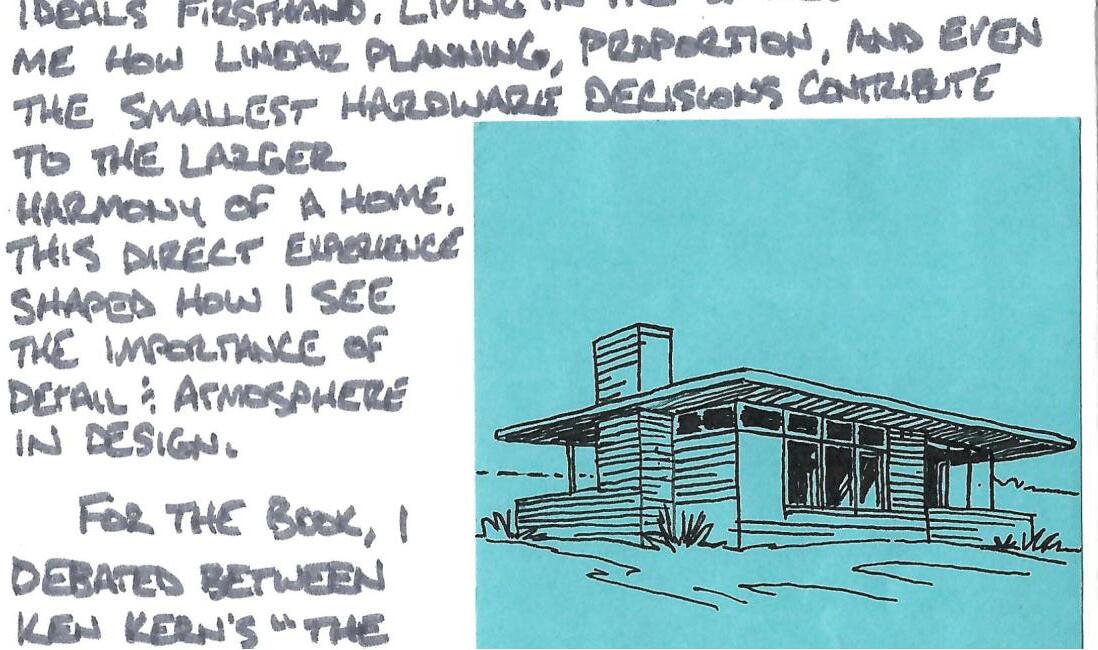 IDEALS FIRSTHAND. LIVING IN
ME HOW LINEAR PLANNING, PROPORTION, AND EVEN
THE SMALLEST HARDWARE DECISIONS CONTRIBUTE
TO THE LARGER
HARMONY OF A HOME.
THIS DIRECT EXPERIENCE
SHAPED HOW I SEE
THE IMPORTANCE OF
DETAIL & ATMOSPHERE
IN DESIGN.
FOR THE BOOK, I
DEBATED BETWEEN
KEN KERN'S "THE